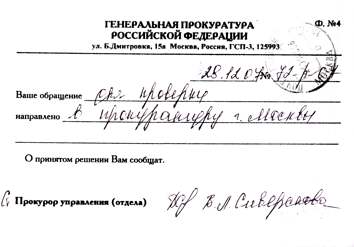 ГЕНЕРАЛЬНАЯ ПРОКУРАТУРА
Ф. №4
РОССИЙСКОЙ ФЕДЕРАЦИИ
ул. Б.Дмитровка, 15а Москва, Россия, ГСП-3, 125993
28.12.04
Ваше обращение для проверки
направлено в прокуратуру г. Москвы
О принятом решении Вам сообщат.
Прокурор управления (отдела)